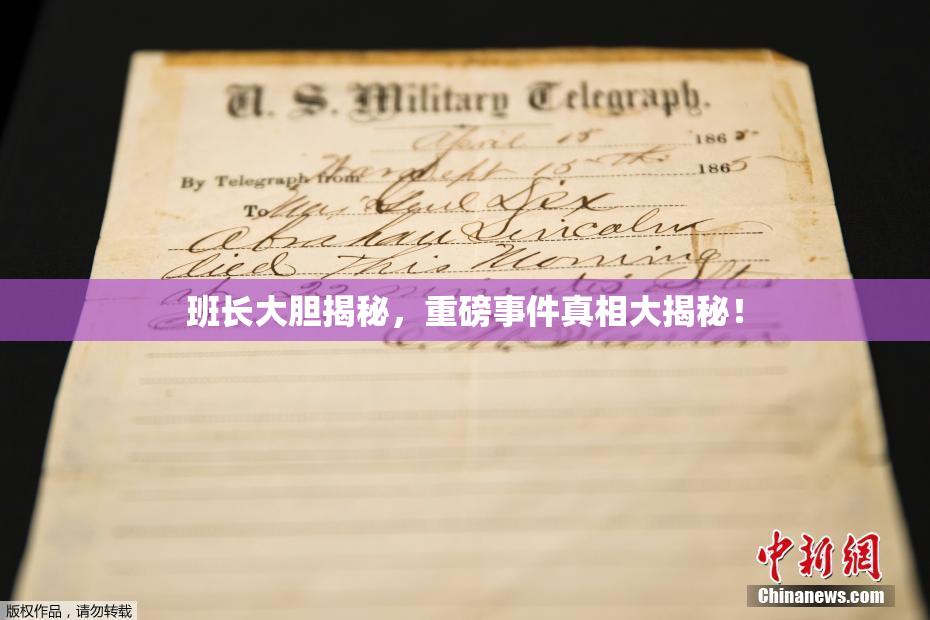 U. S. Military Telegraph.
April 15 1865
By Telegraph from War Dept 15th 1865
To Maj Genl Dix
Abraham Lincoln
died This Morning
at 22 minutes after
班长大胆揭秘，重磅事件真相大揭秘！
E. M. Stanton
中新网
Chinanews.com
版权作品，请勿转载